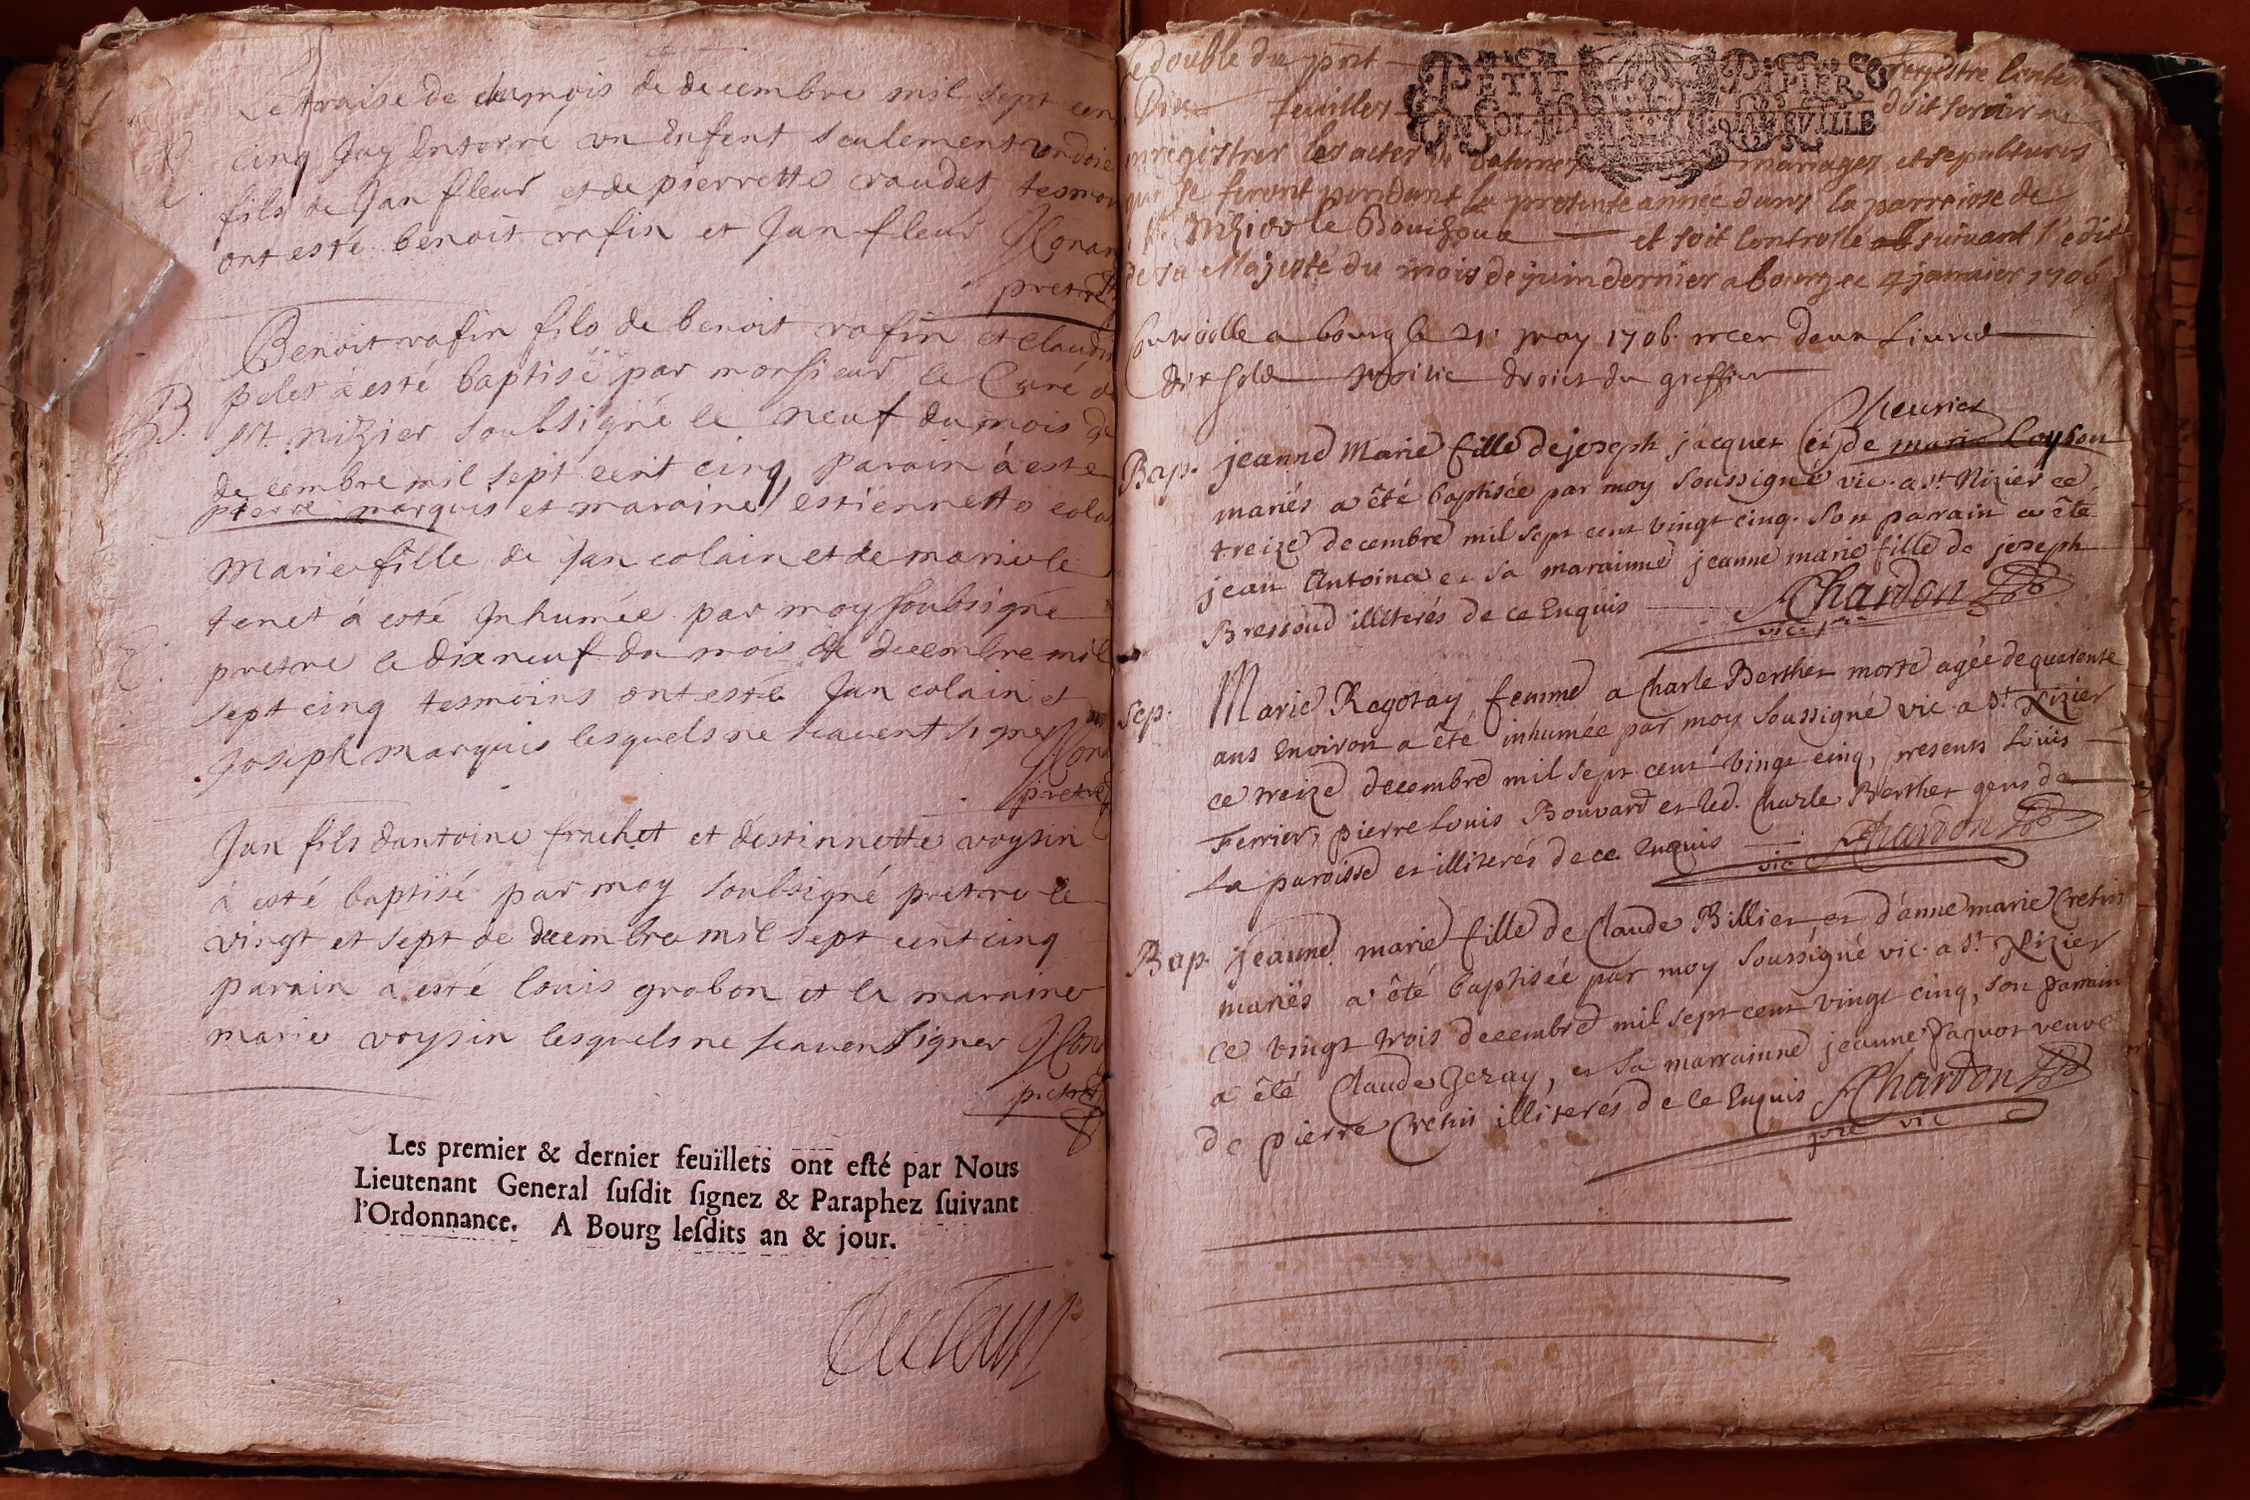 Le traise de du mois de decembre mil sept cen
cinq Jay Enterré un Enfent seulement ondoie
fils de Jan fleur et de pierrette craudet tesmoi
ont esté benoit rafin et Jan fleur
pretre
B.
Benoit rafin fils de benoit rafin et claudi
polet à esté baptisé par monsieur le Curé d
St. nizier soubsigné le neuf du mois de
decembre mil sept cent cinq, parain à esté
pierre marquis et maraine estiennette cola
Marie fille de Jan colain et de marie le
tenet à esté Inhumée par moy soubsigné
pretre le dixneuf du mois de decembre mil
sept cinq tesmoins ont esté Jan colain et
Joseph marquis lesquels ne scavent signer
pretre
Jan fils dantoine frachet et destinnette voysin
à esté baptisé par moy soubsigné pretre le
vingt et sept de decembre mil sept cent cinq
parain à esté louis grobon et la maraine
marie voysin lesquels ne scavent signer
pretre
Les premier & dernier feuillets ont esté par Nous
Lieutenant General susdit signez & Paraphez suivant
l'Ordonnance. A Bourg lesdits an & jour.
le double du pnt registre Conte
Dix feuillets doit servir a
PETIT PAPIER
UN SOL LA FEUILLE
enregistrer les actes de batemes mariages et sepultures
qui se feront pendant la presente annee dans la parroisse de
St Nizier le Bouchoux et soit Controllé suivant l'edit
de sa Majesté du mois de juin dernier a bourg ce 4 janvier 1706
Controlle a bourg le 21 may 1706 recu deux Livres
dix sols moitie droict du greffier
Bap. jeanne Marie fille de joseph jacquet et de marie Loyson
mariés a été baptisée par moy soussigné vic. a St Nizier ce
treize decembre mil sept cent vingt cinq. son parain a été
jean Antoina et sa marainne jeanne marie fille de joseph
Bressoud illiterés de ce Enquis Chardon
vic pre
Sep. Marie Ragotay femme a Charle Berthet morte agée de quarente
ans Environ a été inhumée par moy soussigné vic. a St Nizier
ce treize decembre mil sept cent vingt cinq, presents Louis
Ferrier, pierre Louis Bouvard et led. Charle Berthet gens de
La paroisse et illiterés de ce Enquis Chardon
vic
Bap. jeanne marie fille de Claude Billiet et d'anne marie Cretin
mariés a été baptisée par moy soussigné vic. a St Nizier
ce vingt trois decembre mil sept cent vingt cinq, son parrain
a été Claude Jeray, et sa marrainne jeanne Paquot veuve
de pierre Cretin illiterés de ce Enquis Chardon
pre vic